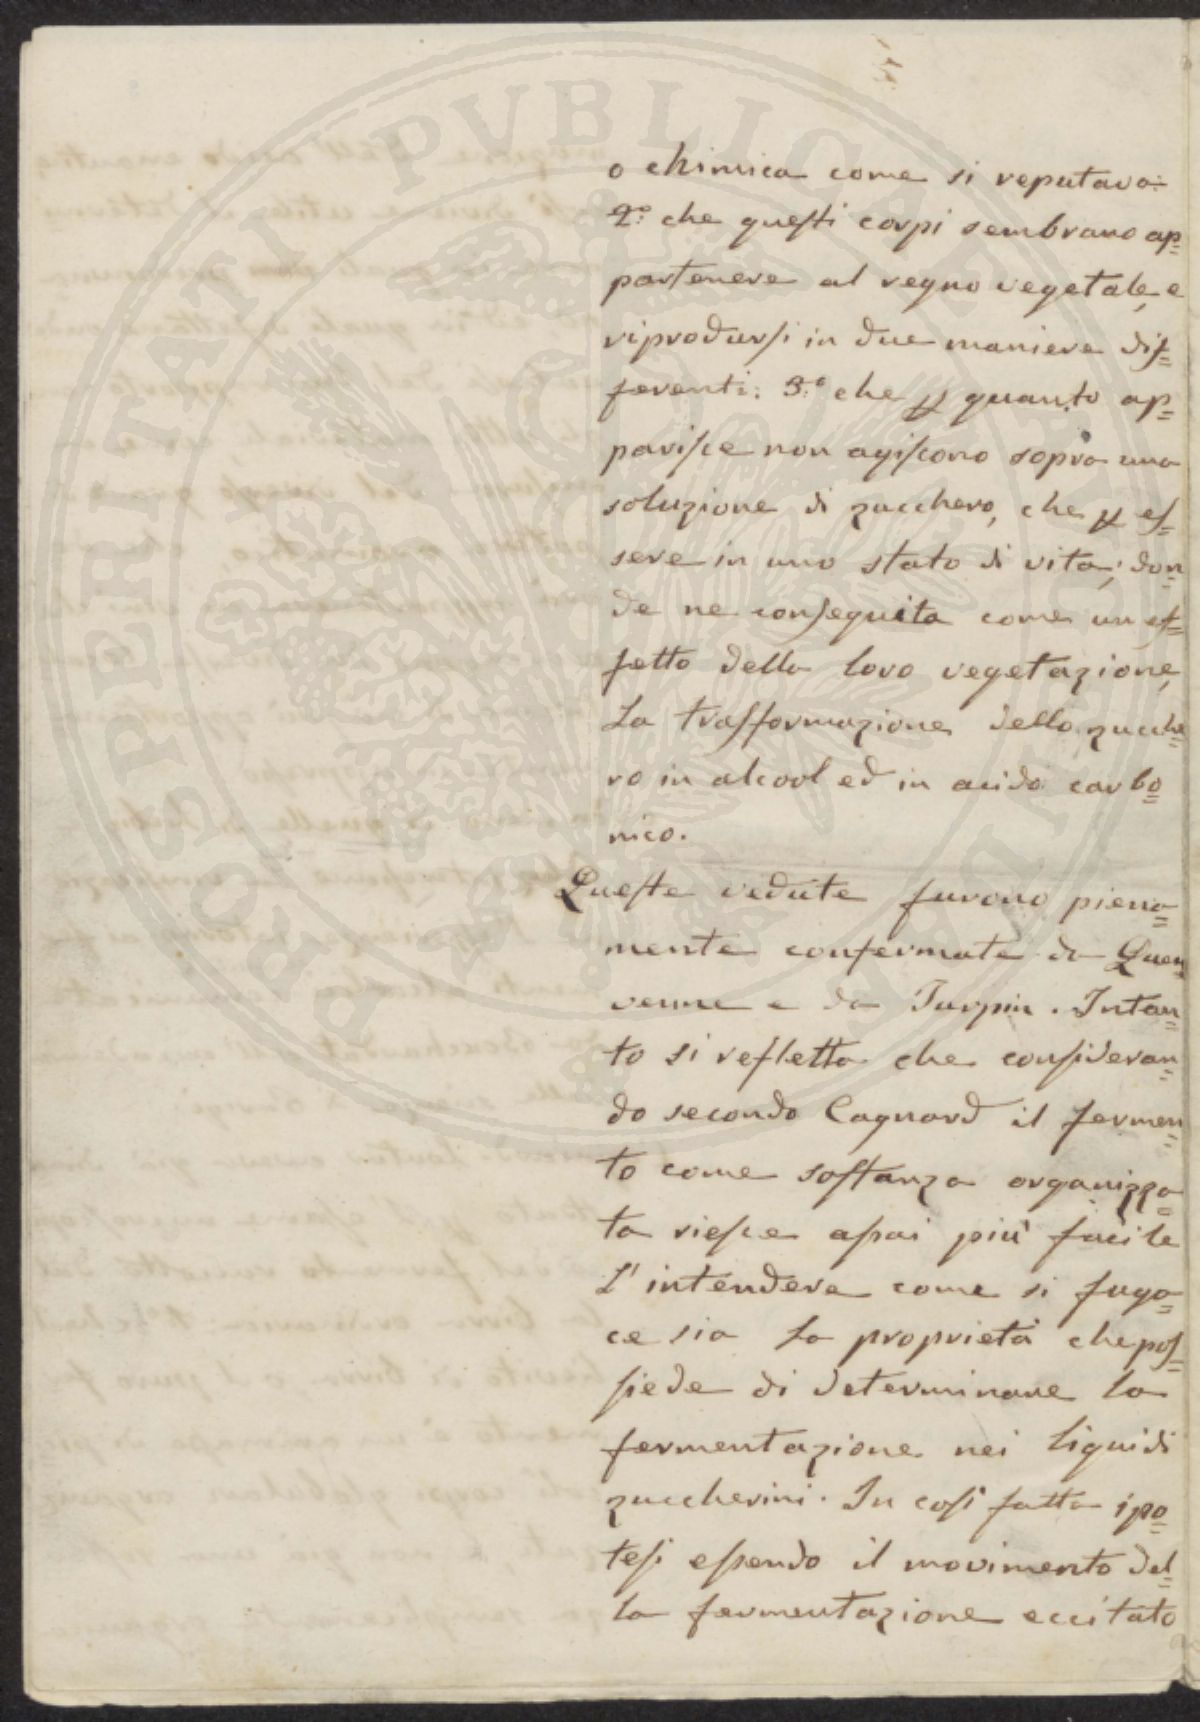 PROSPERITATI PVBLICAE AVGENDAE
o chimica come si reputava:
2.° che questi corpi sembrano ap=
partenere al regno vegetale, e
riprodursi in due maniere dif=
ferenti: 3.° che p quanto ap=
parisce non agiscono sopra una
soluzione di zucchero, che p es=
sere in uno stato di vita; don=
de ne conseguita come un ef=
fetto della loro vegetazione,
la trasformazione dello zucche=
ro in alcool ed in acido carbo=
nico.
Queste vedute furono piena=
mente confermate da Queu=
venne e da Turpin. Intan=
to si refletta che consideran=
do secondo Cagnard il fermen=
to come sostanza organizza=
ta riesce assai più facile
l'intendere come si fuga=
ce sia la proprietà che pos=
siede di determinare la
fermentazione nei liquidi
zuccherini. In così fatta ipo=
tesi essendo il movimento del=
la fermentazione eccitato